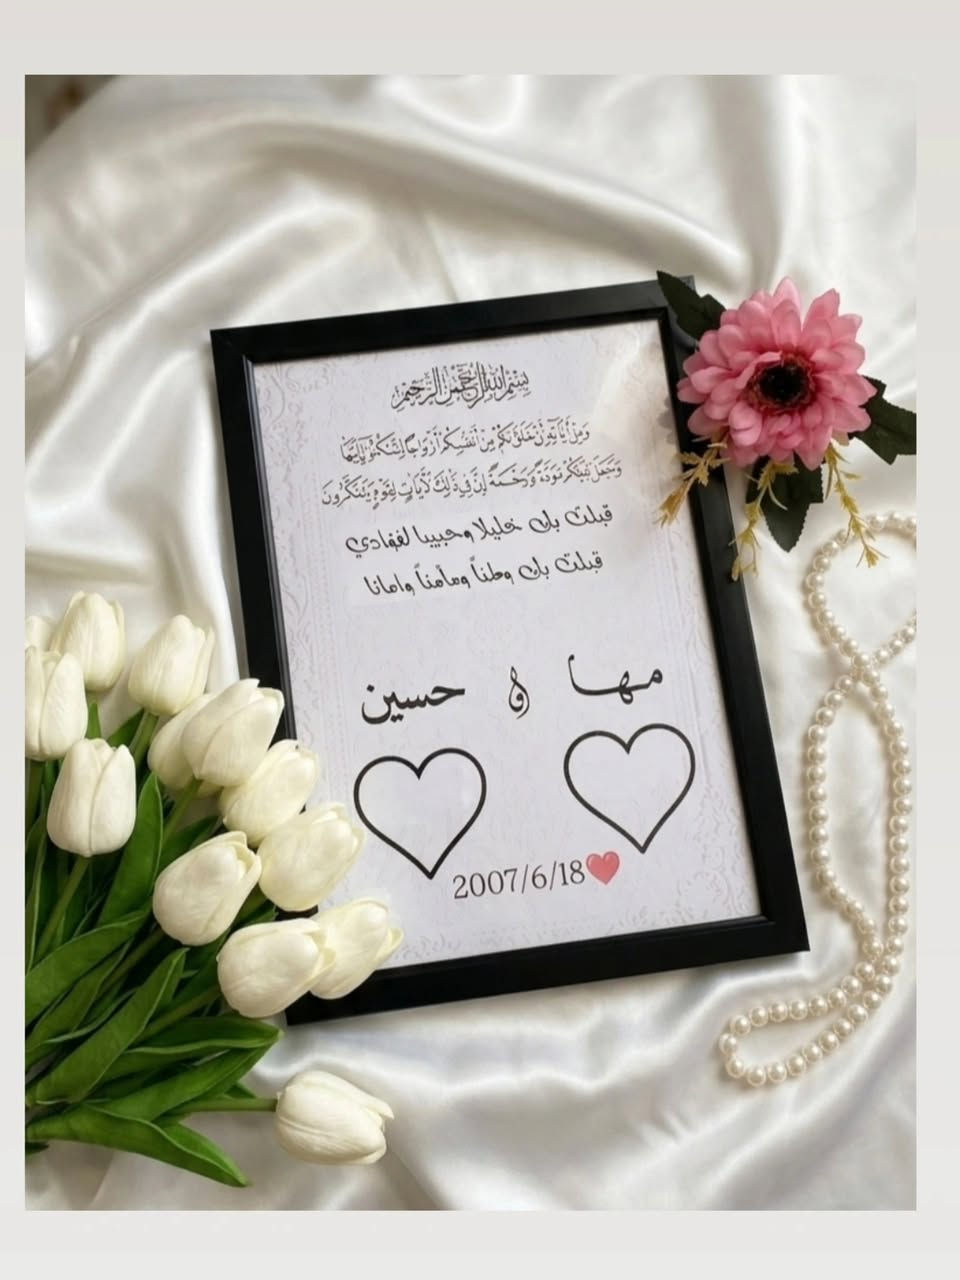 بِسْمِ اللهِ الرَّحْمٰنِ الرَّحِيْمِ
وَمِنْ آيَاتِهِ أَنْ خَلَقَ لَكُم مِّنْ أَنفُسِكُمْ أَزْوَاجًا لِّتَسْكُنُوا إِلَيْهَا
وَجَعَلَ بَيْنَكُم مَّوَدَّةً وَرَحْمَةً إِنَّ فِي ذَٰلِكَ لَآيَاتٍ لِّقَوْمٍ يَتَفَكَّرُونَ
قبلت بك خليلا وحبيبا لفؤادي
قبلت بك وطناً ومأمناً وامانا
مها و حسين
2007/6/18❤